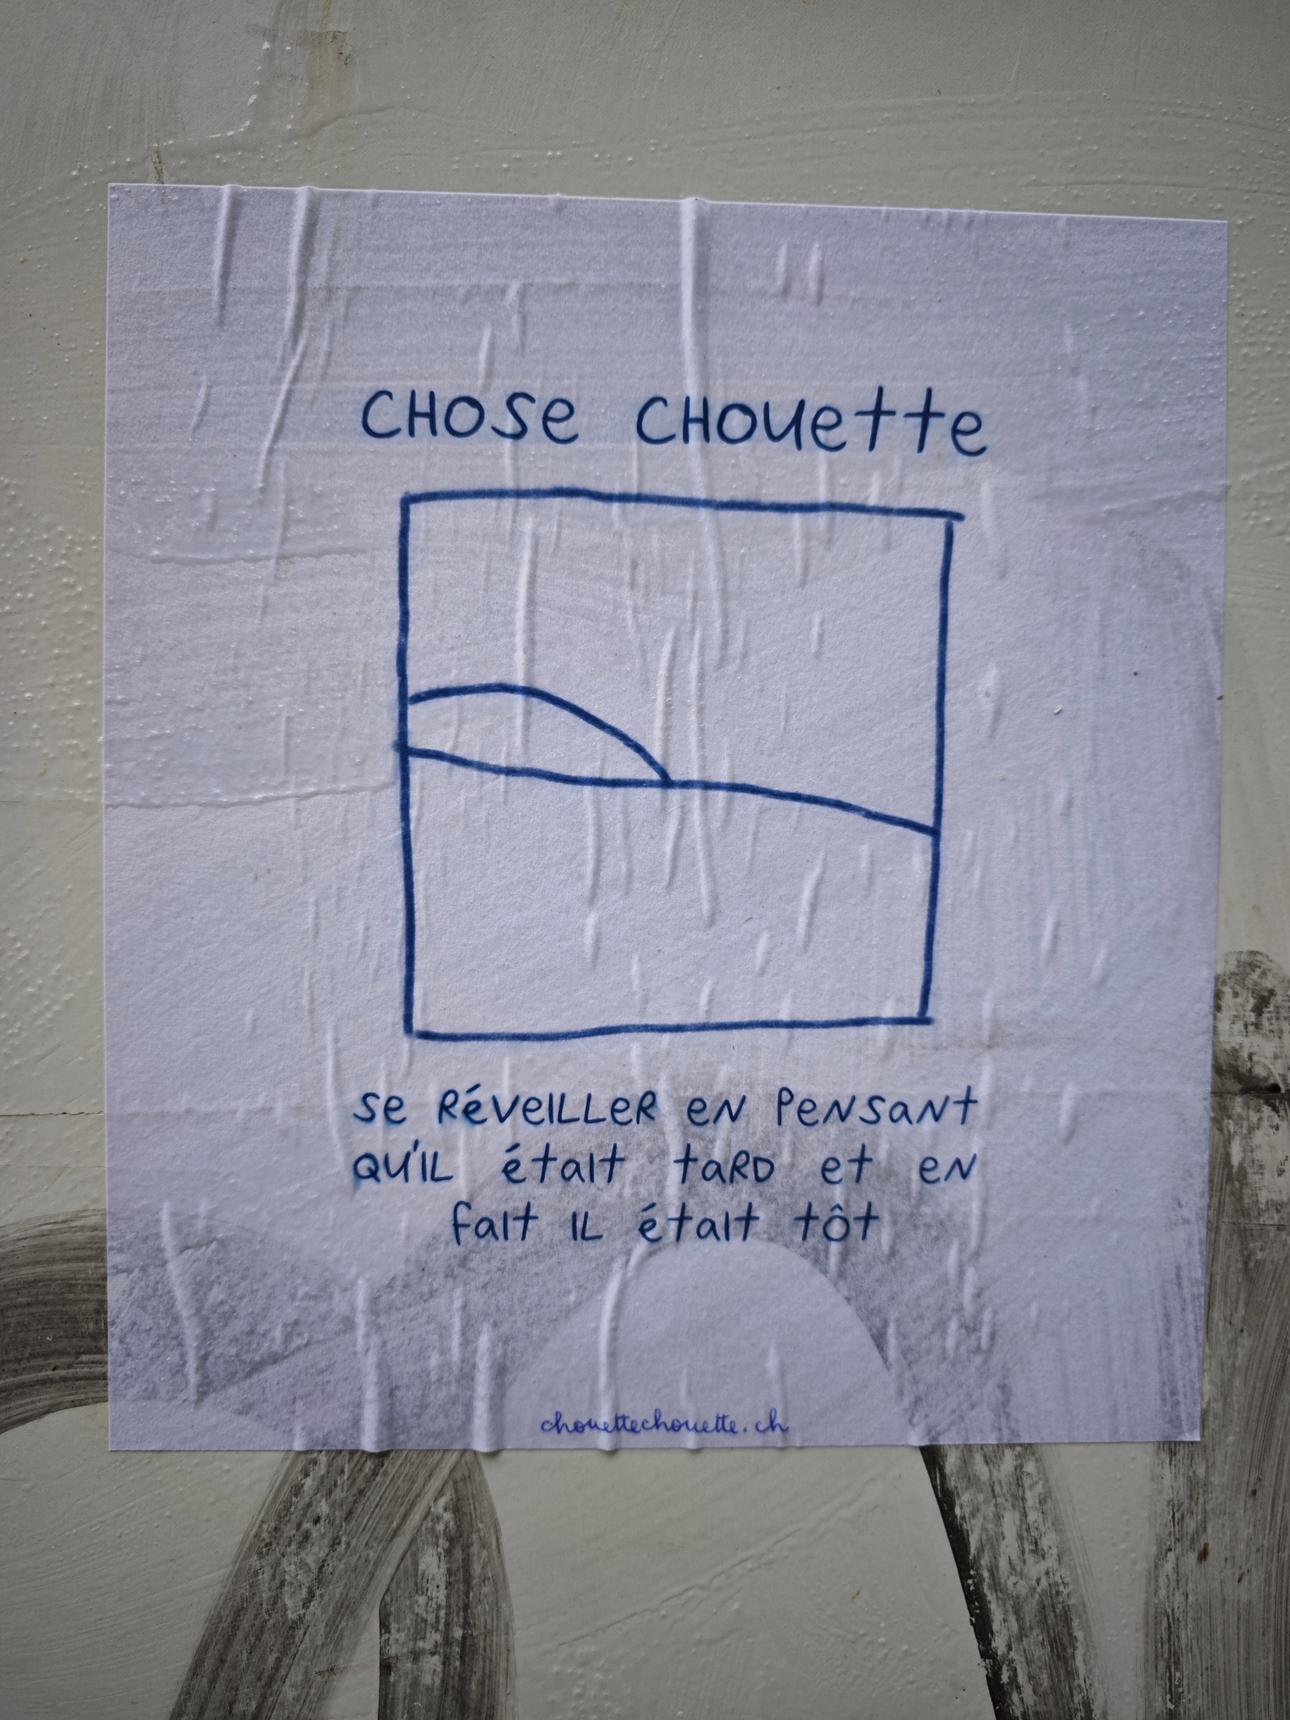 CHOSe CHOuette
Se RéVeILLeR eN PeNSaNt
QU'IL étaIt taRD et eN
faIt IL étaIt tôt
chouettechouette.ch